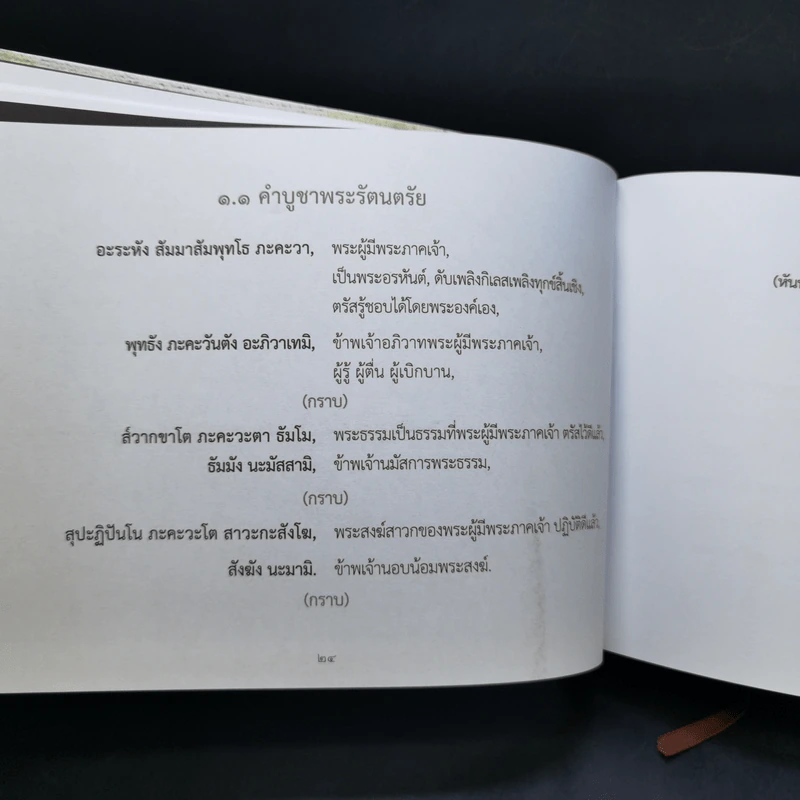 ๑.๑ คำบูชาพระรัตนตรัย
อะระหัง สัมมาสัมพุทโธ ภะคะวา, พระผู้มีพระภาคเจ้า,
เป็นพระอรหันต์, ดับเพลิงกิเลสเพลิงทุกข์สิ้นเชิง,
ตรัสรู้ชอบได้โดยพระองค์เอง,
พุทธัง ภะคะวันตัง อะภิวาเทมิ, ข้าพเจ้าอภิวาทพระผู้มีพระภาคเจ้า,
ผู้รู้ ผู้ตื่น ผู้เบิกบาน,
(กราบ)
ส๎วากขาโต ภะคะวะตา ธัมโม, พระธรรมเป็นธรรมที่พระผู้มีพระภาคเจ้า ตรัสไว้ดีแล้ว,
ธัมมัง นะมัสสามิ, ข้าพเจ้านมัสการพระธรรม,
(กราบ)
สุปะฏิปันโน ภะคะวะโต สาวะกะสังโฆ, พระสงฆ์สาวกของพระผู้มีพระภาคเจ้า ปฏิบัติดีแล้ว,
สังฆัง นะมามิ. ข้าพเจ้านอบน้อมพระสงฆ์.
(กราบ)
๒๔